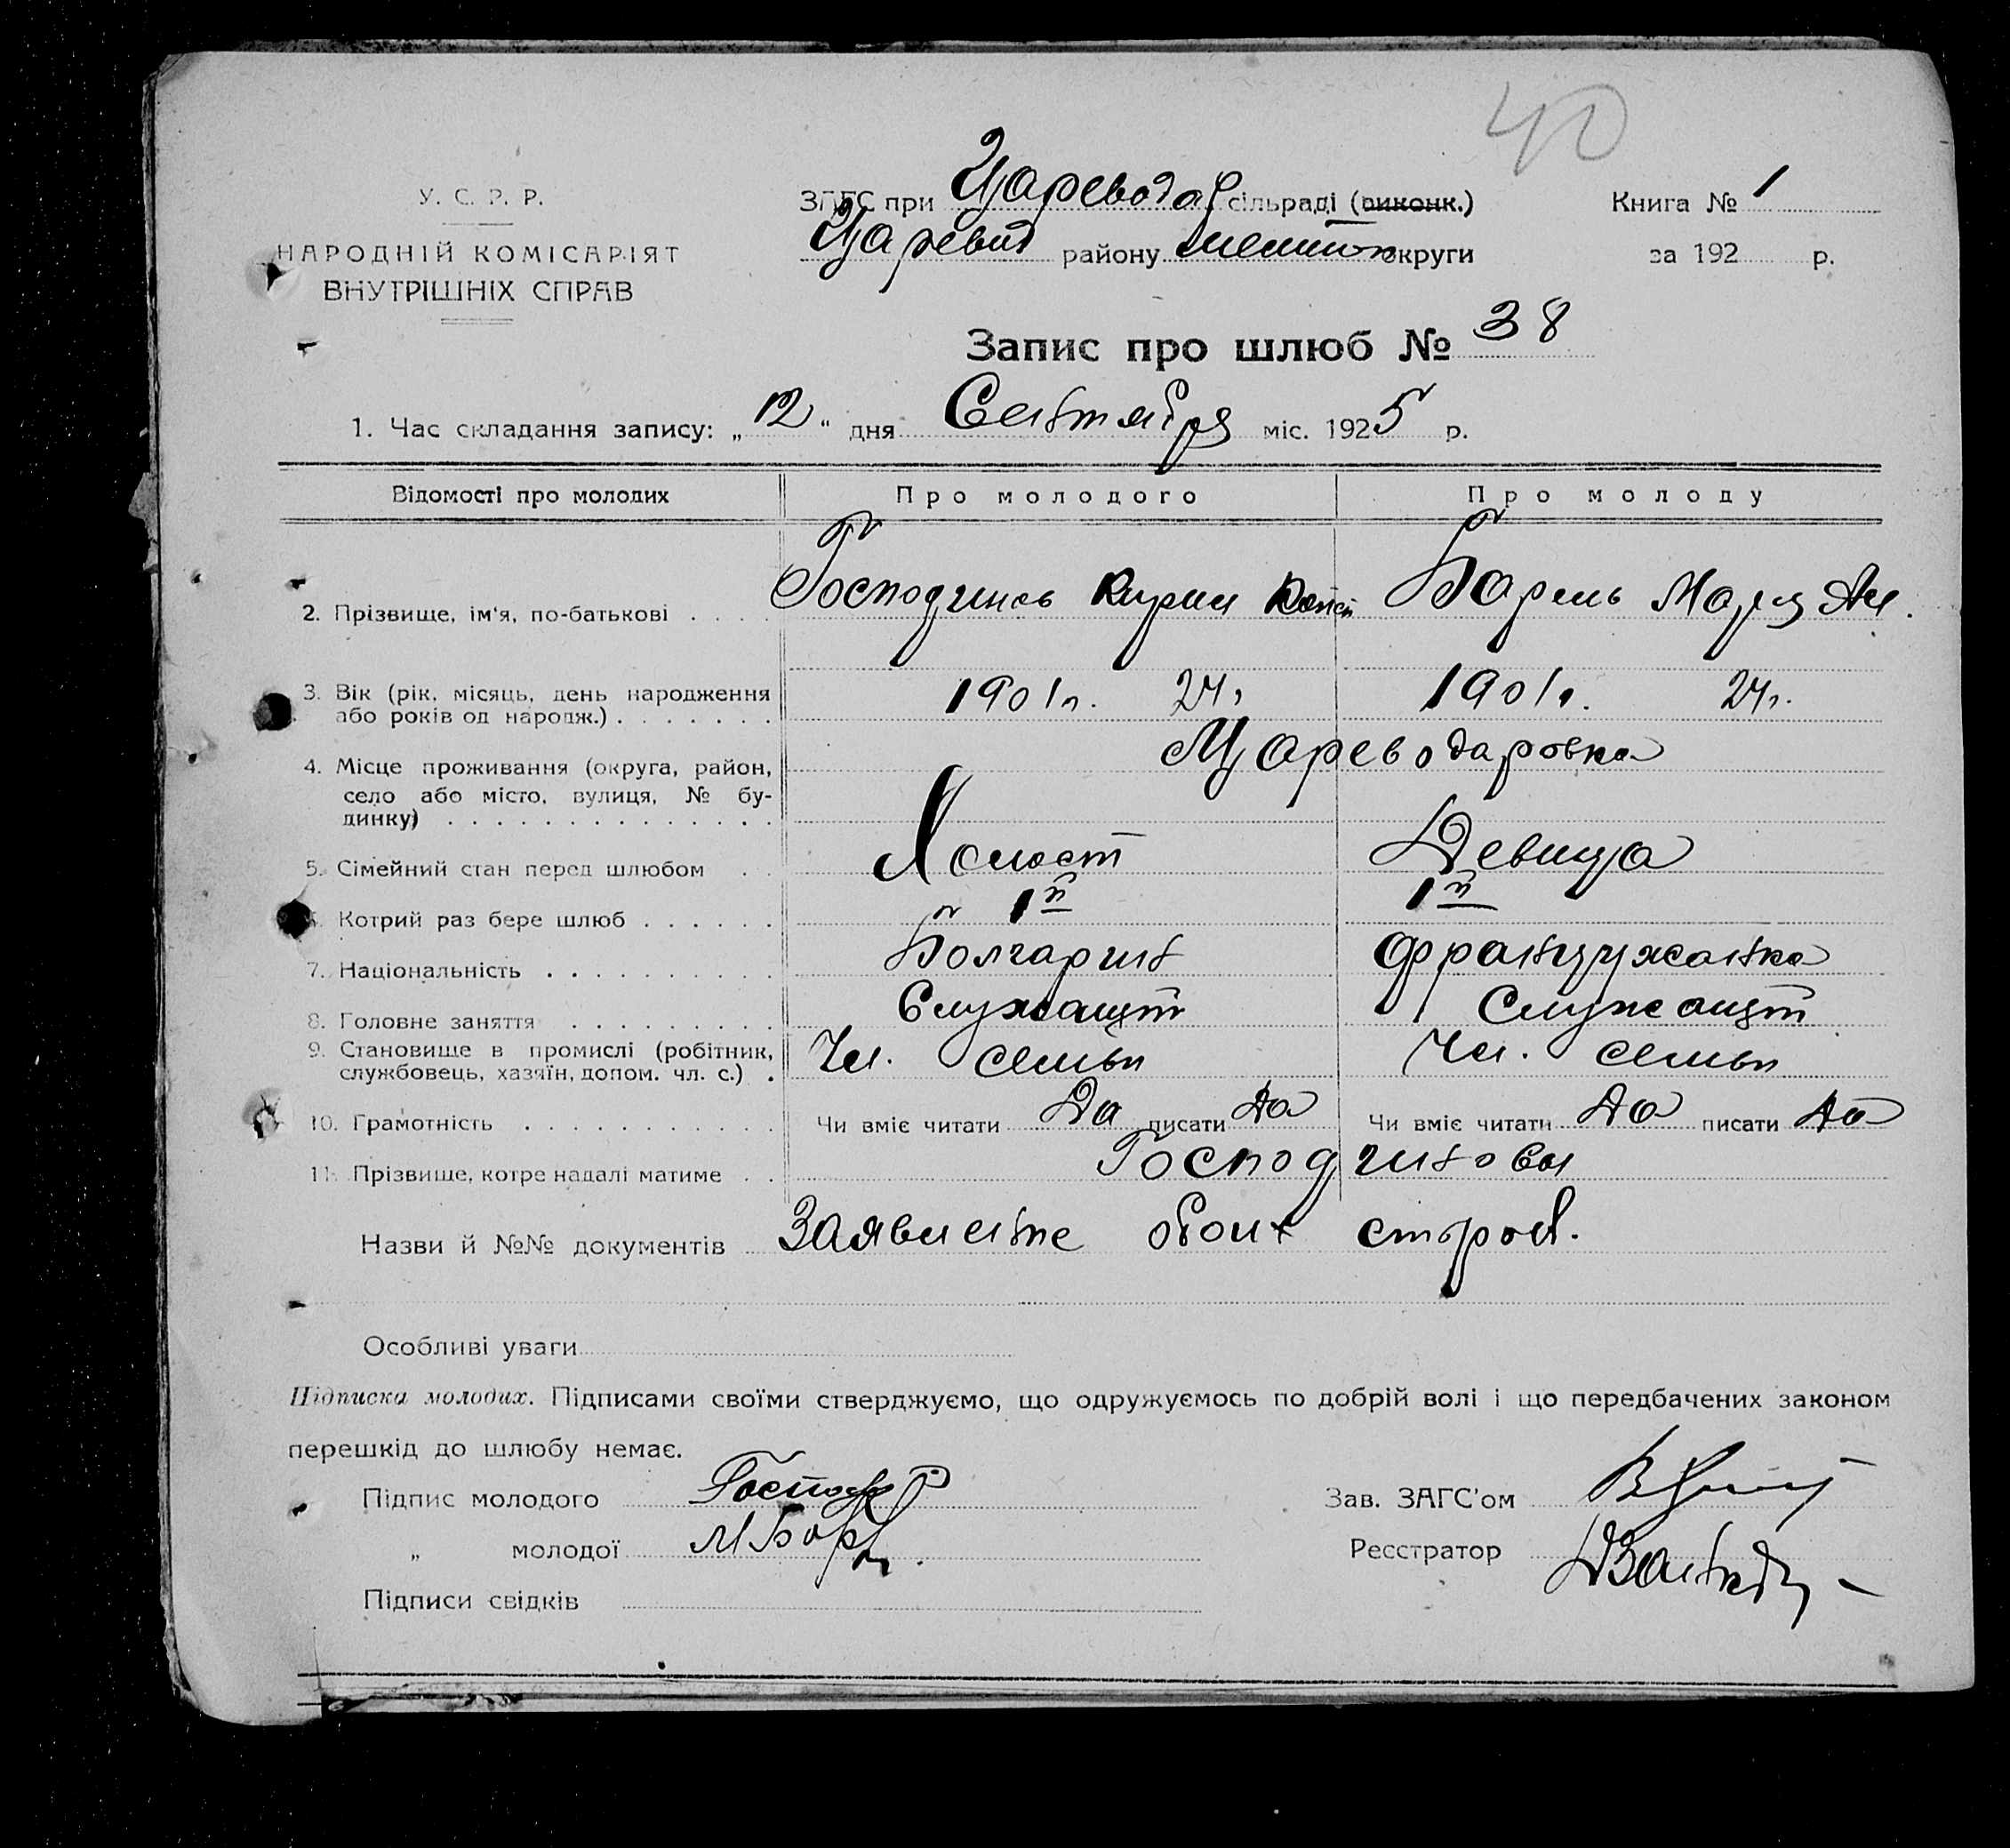 40
У. С. Р. Р.
НАРОДНІЙ КОМІСАРІЯТ
ВНУТРІШНІХ СПРАВ
ЗАГС при Цареводар сільраді (виконк.)
Царевод району округи
Книга № 1
за 192 р.
Запис про шлюб № 38
1. Час складання запису: „12“ дня Сентября міс. 1925 р.
Відомості про молодих Про молодого Про молоду
2. Прізвище, ім'я, по-батькові . . . . Господинов Кирил Конст Барель Мария Ан.
3. Вік (рік, місяць, день народження
або років од народж.) . . . . . . . 1901г. 24г. 1901г. 24г.
4. Місце проживання (округа, район,
село або місто, вулиця, № бу-
динку) . . . . . . . . . . . . . . Цареводаровка
5. Сімейний стан перед шлюбом . . Холост Девица
6. Котрий раз бере шлюб . . . . . . 1й 1й
7. Національність . . . . . . . . . . Болгарин Француженка
8. Головне заняття . . . . . . . . . Служащ Служащ
9. Становище в промислі (робітник,
службовець, хазяїн, допом. чл. с.) . Чл. семьи Чл. семьи
10. Грамотність . . . . . . . . . . . Чи вміє читати Да писати Да Чи вміє читати Да писати Да
11. Прізвище, котре надалі матиме . . Господиновы
Назви й №№ документів Заявление обоих сторон.
Особливі уваги
Підписка молодих. Підписами своїми стверджуємо, що одружуємось по добрій волі і що передбачених законом
перешкід до шлюбу немає.
Підпис молодого Господ
„ молодої М Бар
Підписи свідків
Зав. ЗАГС'ом
Реєстратор